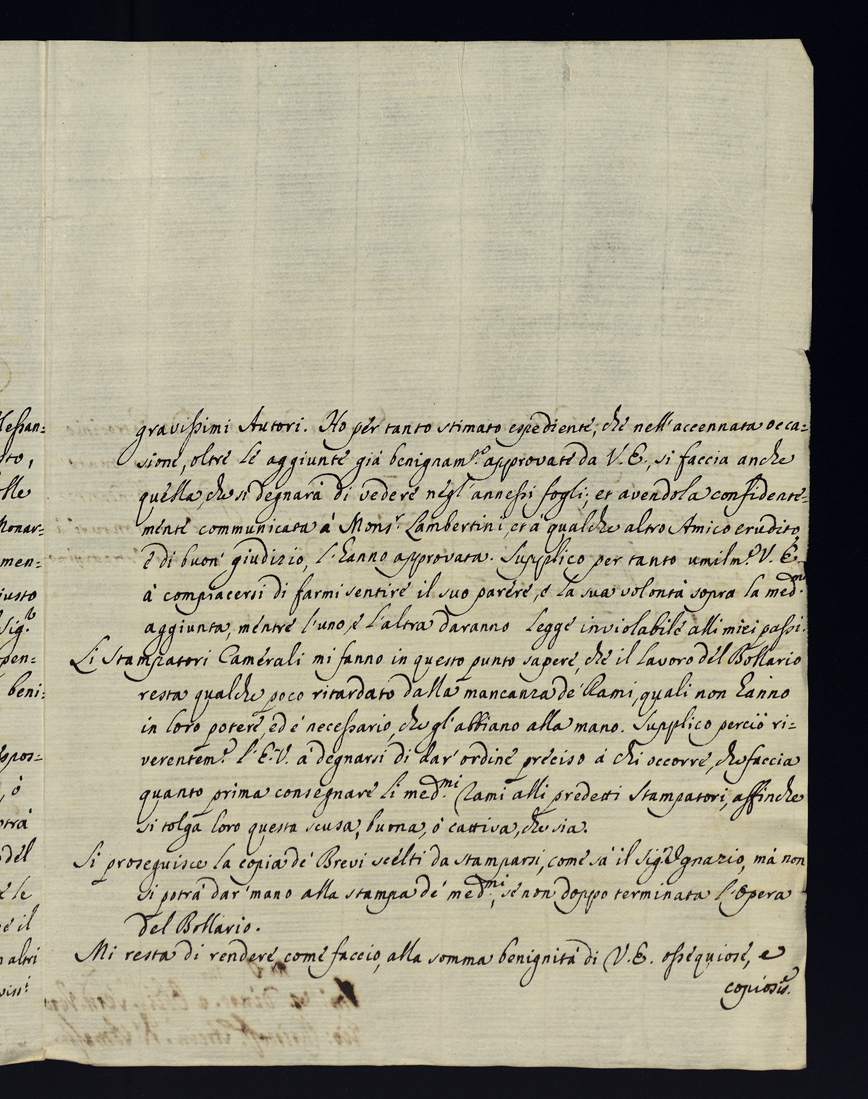 gravissimi Autori. Ho per tanto stimato espediente, che nell'accennata occa=
sione, oltre le aggiunte già benignam.te approvate da V. E., si faccia anche
quella, che si degnarà di vedere negl'annessi fogli; et avendola confidente=
mente communicata à Mons.r Lambertini, et à qualche altro Amico erudito,
e di buon giudizio, l'hanno approvata. Supplico per tanto umilm.e V. E.
à compiacersi di farmi sentire il suo parere, e la sua volontà sopra la med.ma
aggiunta, mentre l'uno, e l'altra daranno legge inviolabile alli miei passi.
Li Stampatori Camerali mi fanno in questo punto sapere, che il lavoro del Bollario
resta qualche poco ritardato dalla mancanza de' Rami, quali non hanno
in loro potere, ed è necessario, che gl'abbiano alla mano. Supplico perciò ri=
verentem.e l'E. V. a degnarsi di dar' ordine preciso à chi occorre, che faccia
quanto prima consegnare li med.mi Rami alli predetti Stampatori, affinche
si tolga loro questa scusa, buona, ò cattiva, che sia.
Si proseguisce la copia de' Brevi scelti da stamparsi, come sà il Sig.r Ignazio, mà non
si potrà dar' mano alla stampa de' med.mi, se non doppo terminata l'Opera
del Bollario.
Mi resta di rendere come faccio, alla somma benignità di V. E. ossequiose, e
copiosis.e